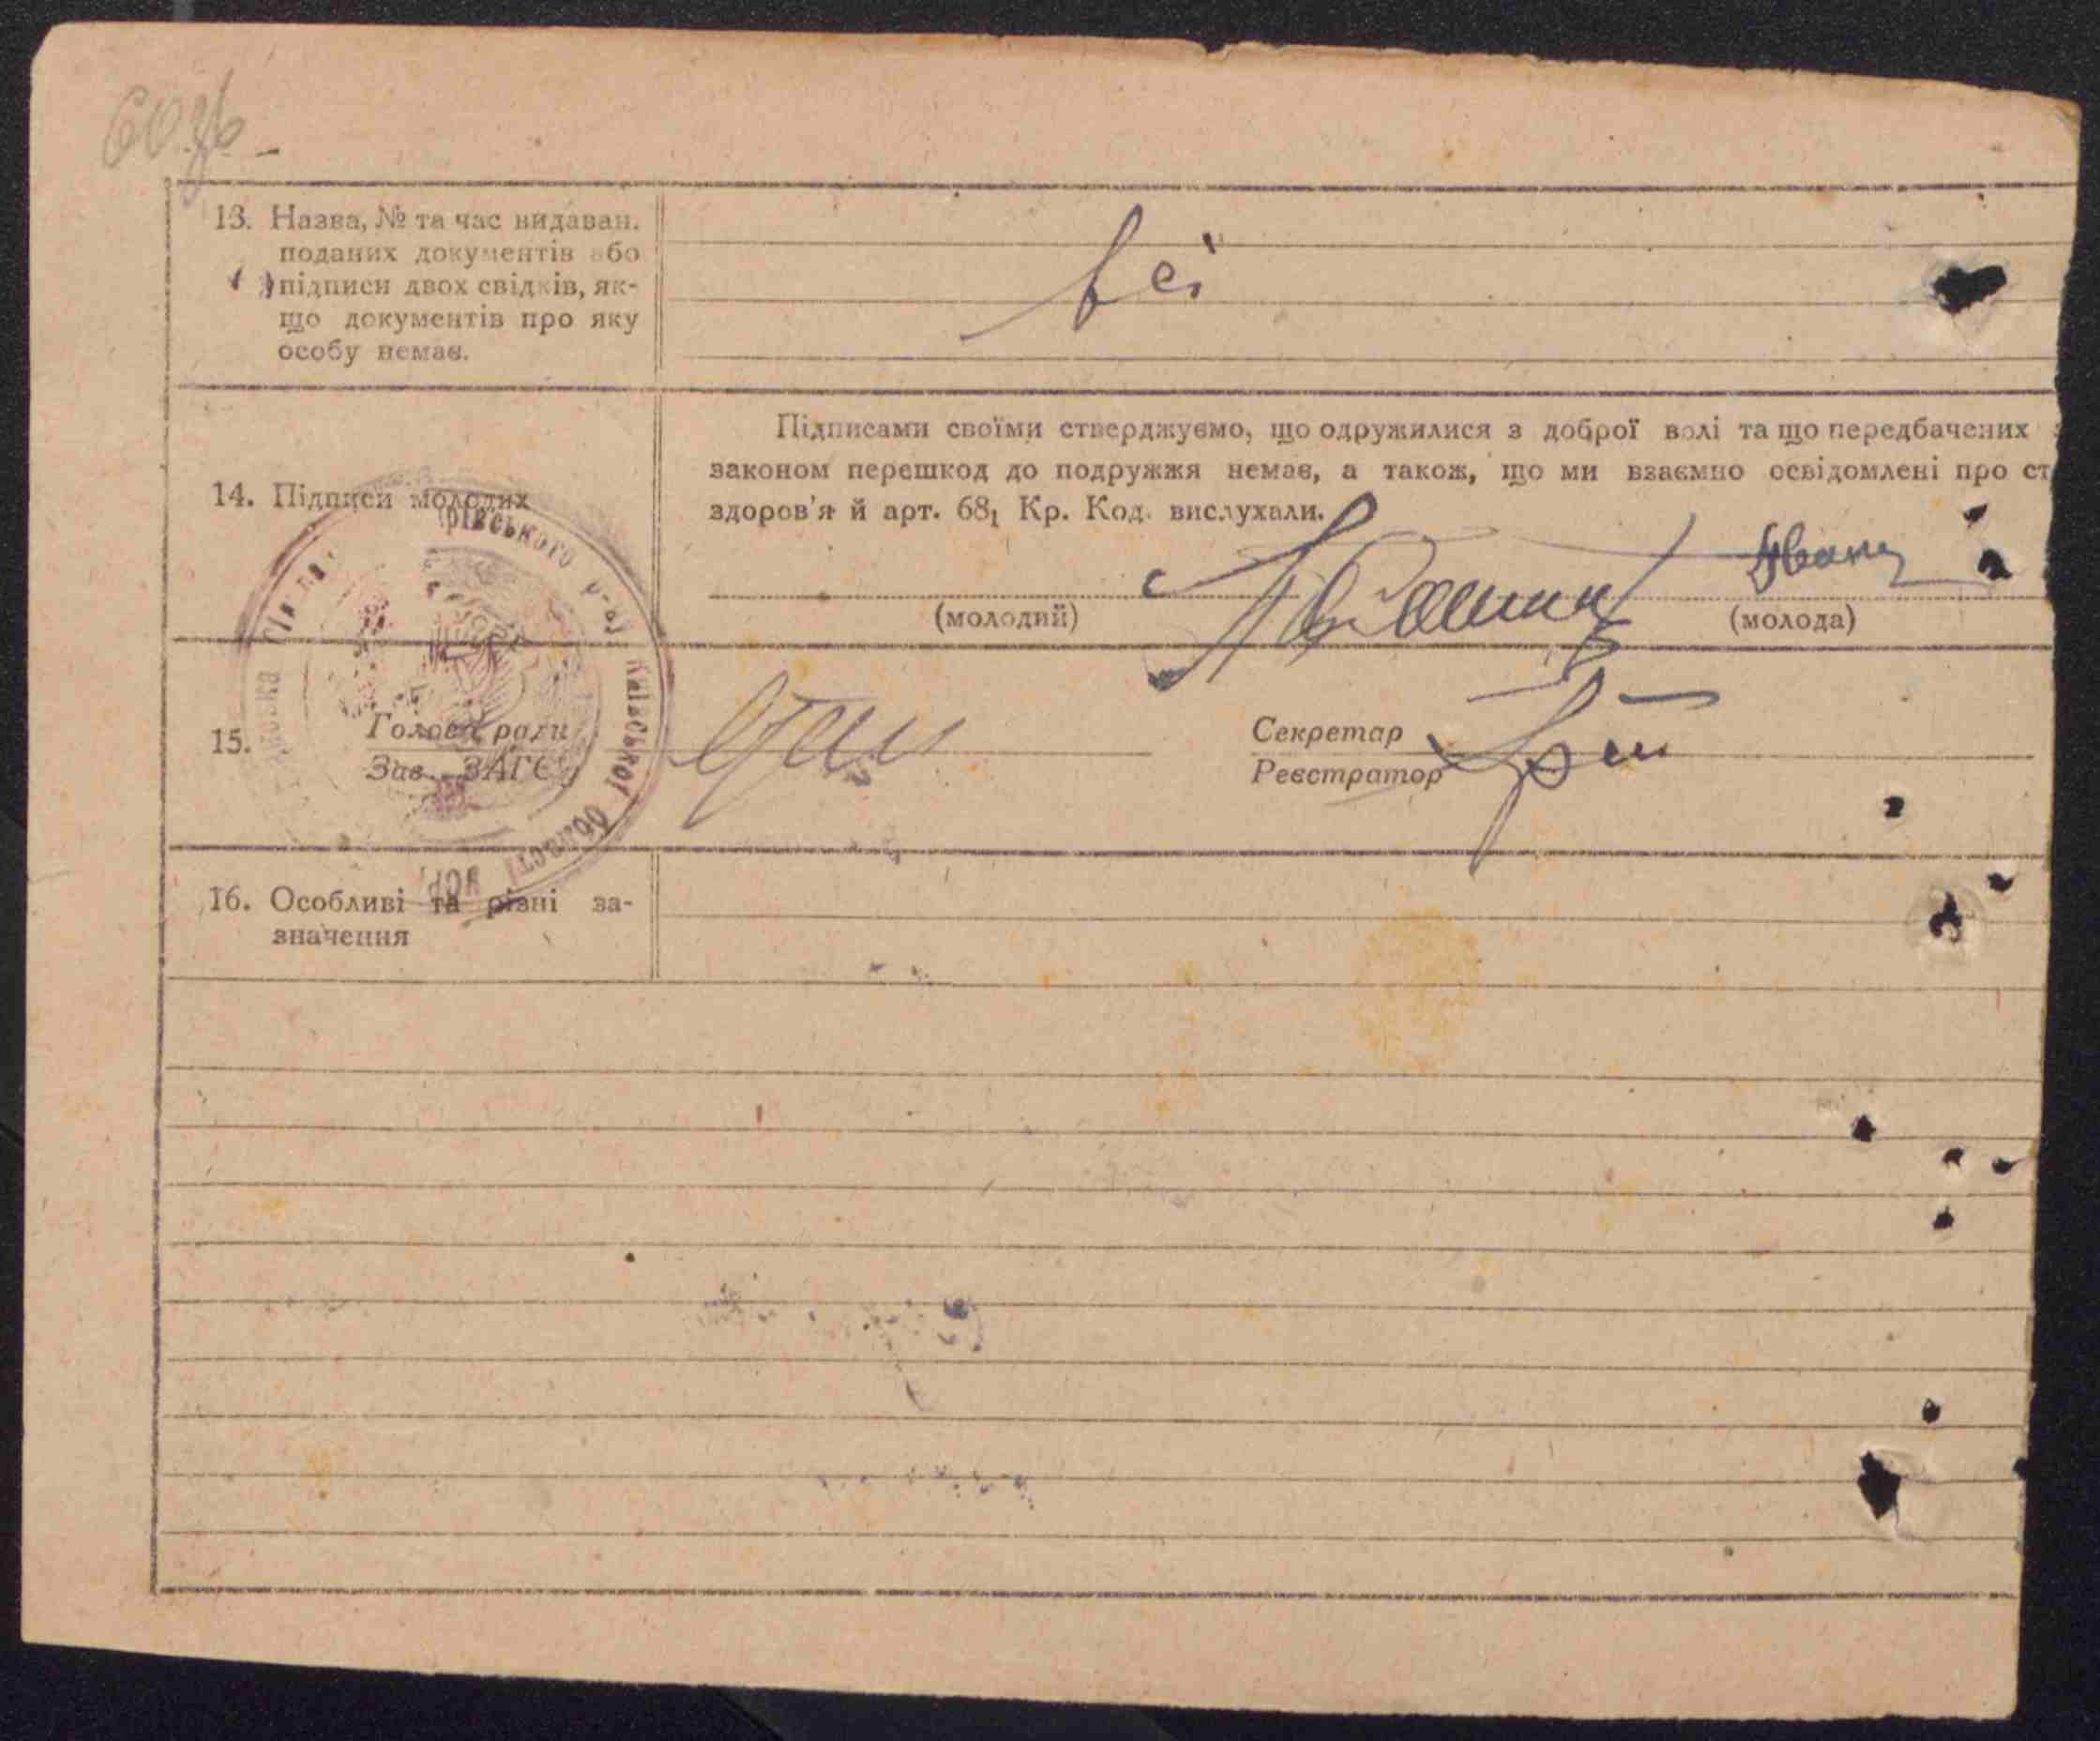 13. Назва, № та час видаван.
поданих документів або
підписи двох свідків, як-
що документів про яку
особу немає.
всі
14. Підписи молодих
Підписами своїми стверджуємо, що одружилися з доброї волі та що передбачених
законом перешкод до подружжя немає, а також, що ми взаємно освідомлені про ст
здоров'я й арт. 68₁ Кр. Код. вислухали.
(молодий) (молода)
15. Голова ради
Зав. ЗАГС
Секретар
Реєстратор
рівського р-ну Київської Області УСР
16. Особливі та різні за-
значення